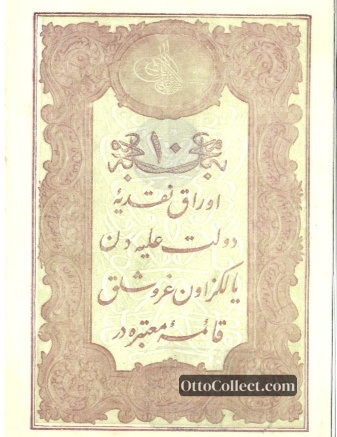 ١٠
اوراق نقدیهٔ
دولت علیه دن
یالکز اون غروشلق
قائمهٔ معتبره در
OttoCollect.com